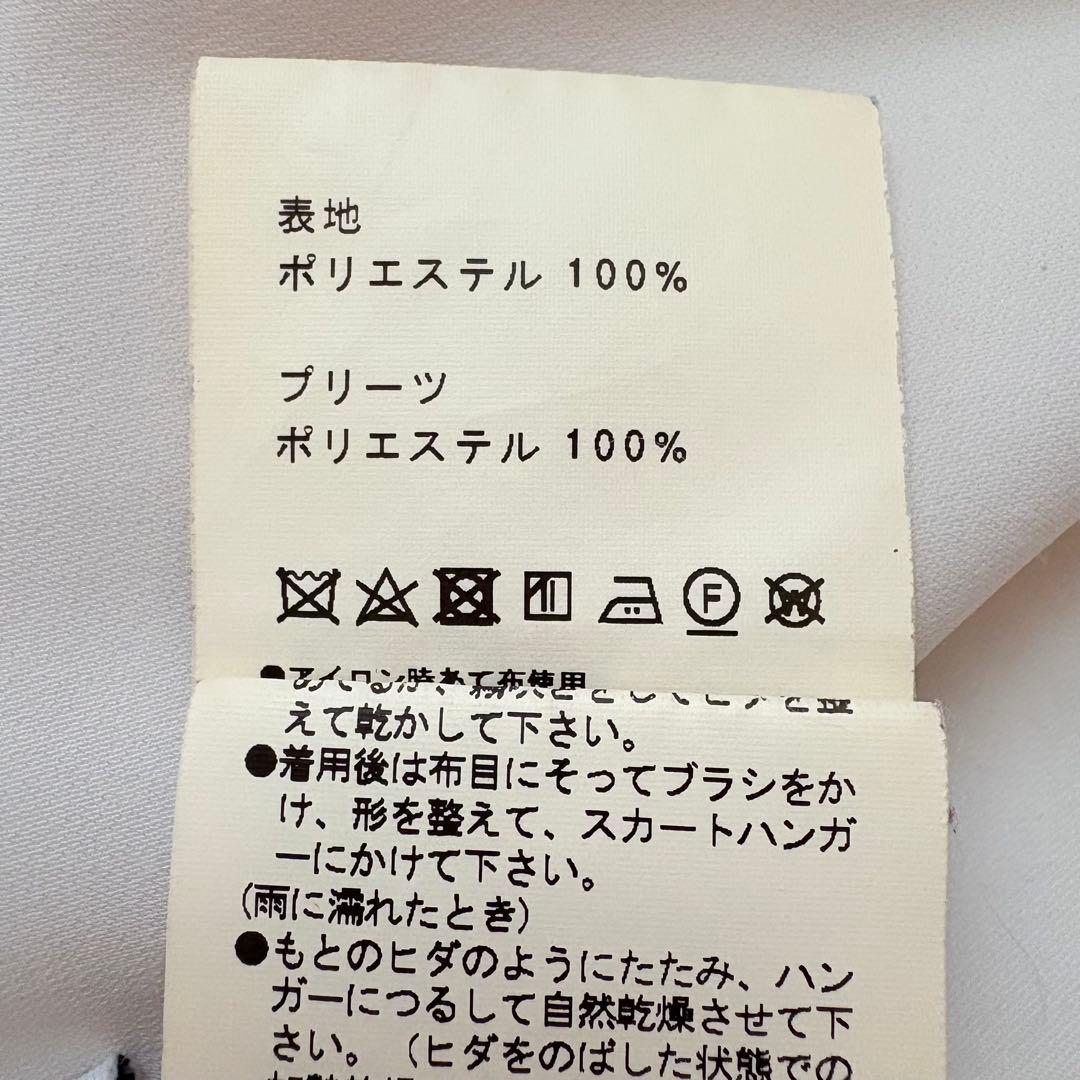 表地
ポリエステル 100%
プリーツ
ポリエステル 100%
F
W
●アイロン時あて布使用
えて乾かして下さい。
●着用後は布目にそってブラシをか
け、形を整えて、スカートハンガ
ーにかけて下さい。
(雨に濡れたとき)
●もとのヒダのようにたたみ、ハン
ガーにつるして自然乾燥させて下
さい。(ヒダをのばした状態での